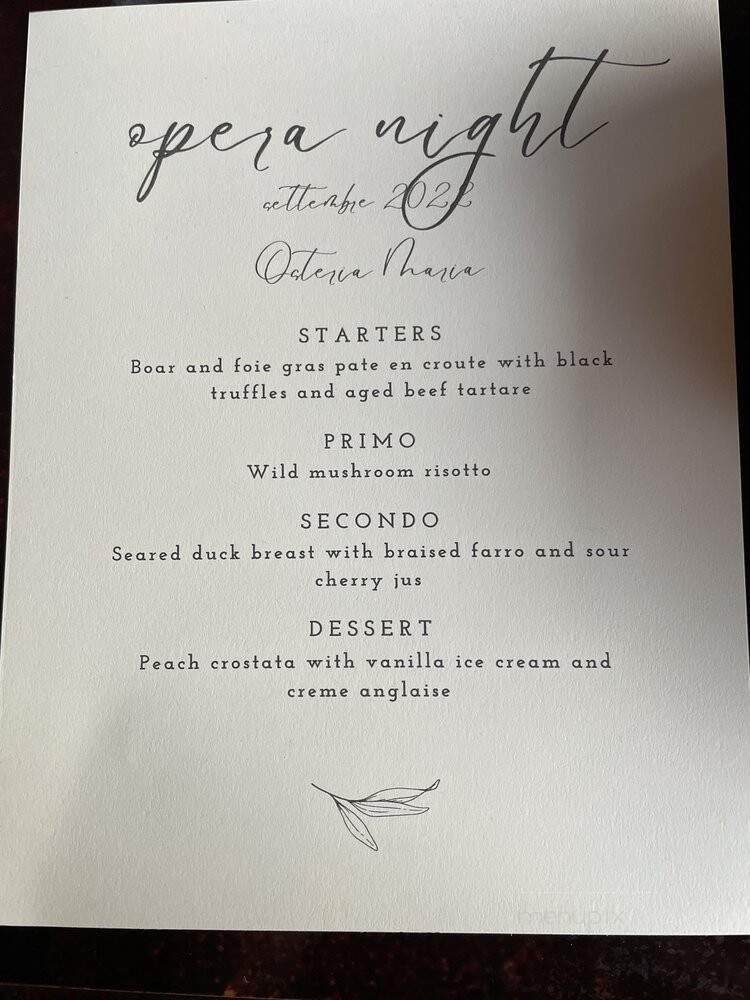 opera night
settembre 2022
Osteria Maria
STARTERS
Boar and foie gras pate en croute with black
truffles and aged beef tartare
PRIMO
Wild mushroom risotto
SECONDO
Seared duck breast with braised farro and sour
cherry jus
DESSERT
Peach crostata with vanilla ice cream and
creme anglaise
menupix